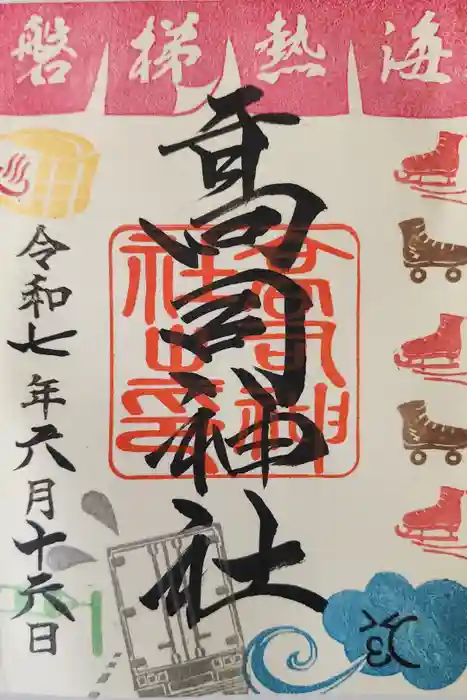 磐梯熱海
高司神社
高司神
社之印
令和七年六月十六日